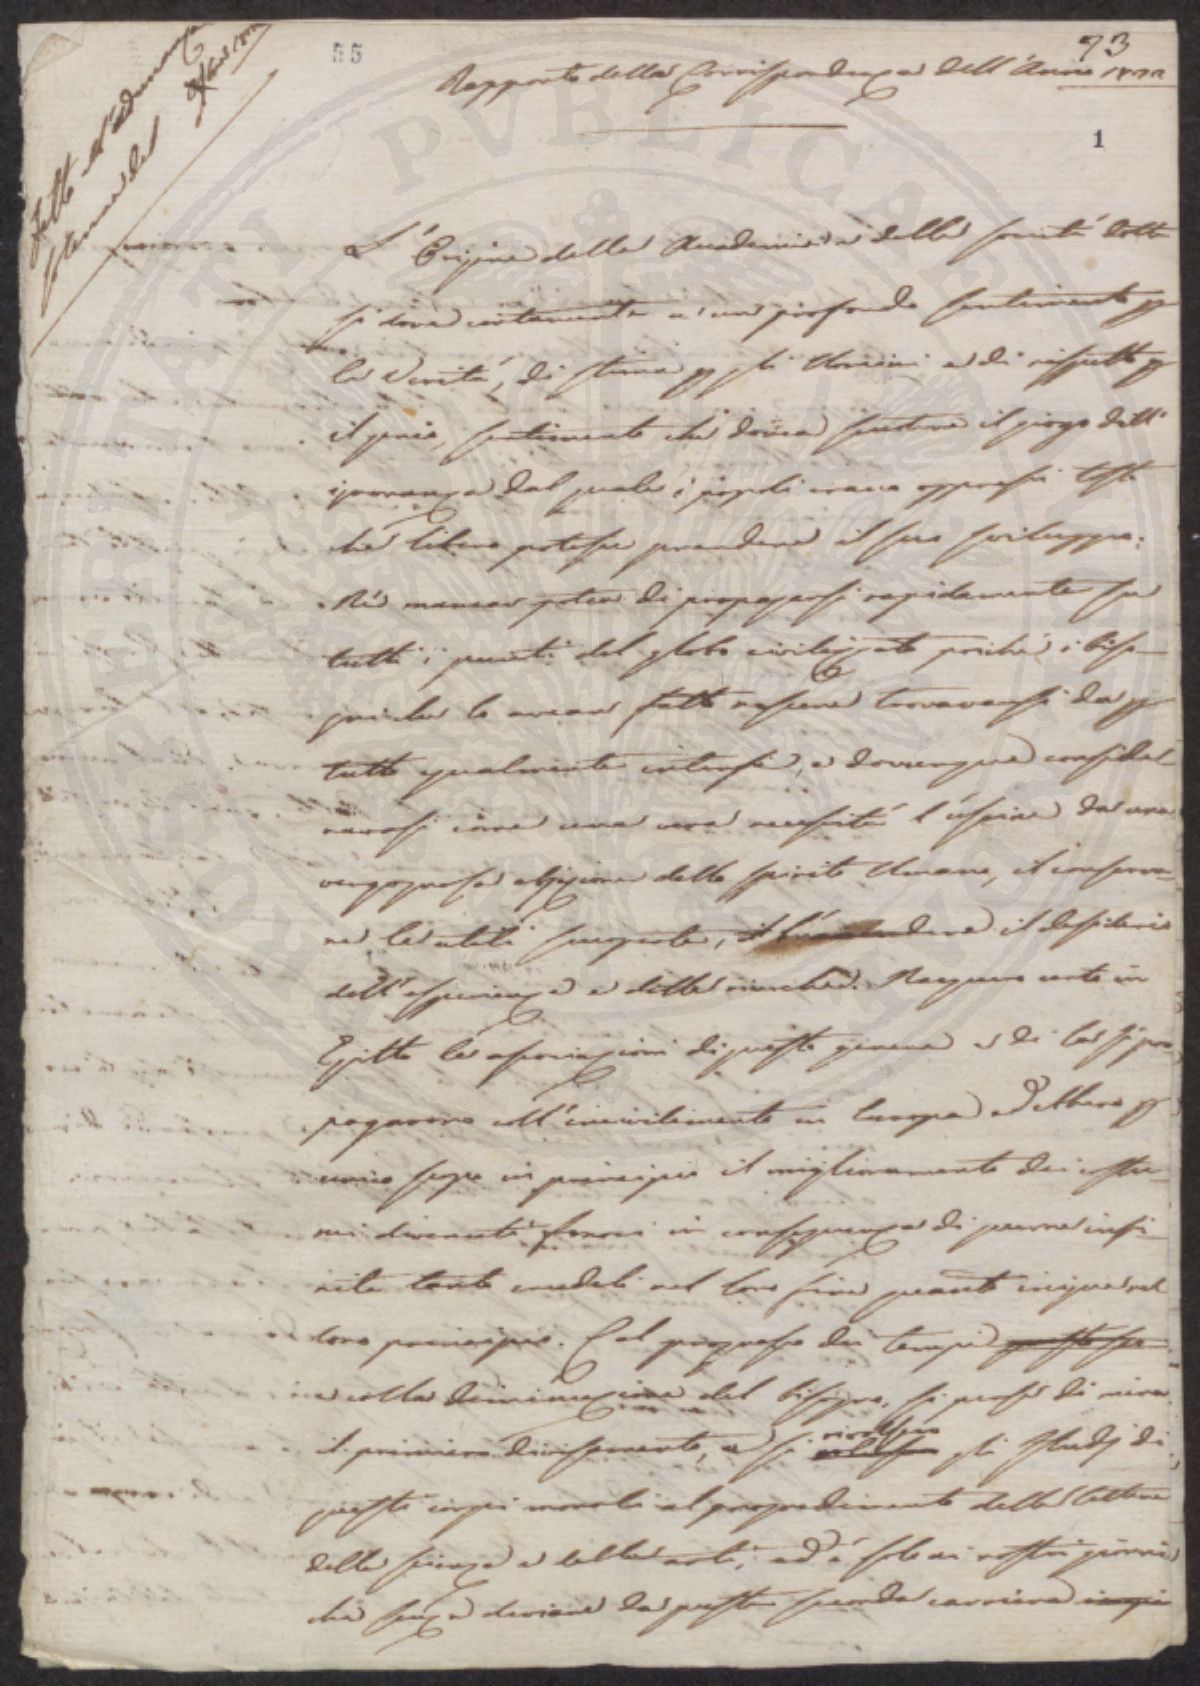 73
55
Rapporto della Corrispondenza dell'Anno
1
Letto all'Adunanza
solenne del
L'Origine delle Accademie e delle società dotte
si dove certamente a un profondo sentimento p
la Verità, di stima p gli Uomini e di rispetto p
il genio, sentimento che dovea scuotere il giogo dell'
ignoranza dal quale i popoli erano oppressi tosto
che libero potesse prendere il suo sviluppo.
Né mancar potea di propagarsi rapidamente su
tutti i punti del globo civilizzato poiché i biso-
gni che lo avean fatto nascere trovavansi da p
tutto egualmente intensi, e dovunque conside-
ravasi come una vera necessità l'uscire da una
vergognosa abjezione dello spirito Umano, il conserva-
re le utili scoperte, il desiderio
dell'esperienza e delle ricerche. Nacquero certo in
Egitto le associazioni di questo genere e di là si pro-
pagarono coll'incivilimento in Europa ed ebbero p
unico scopo in principio il miglioramento dei costu-
mi divenuti feroci in conseguenza di guerre infi-
nite tanto crudeli nel loro fine quanto inique nel
loro principio. Col progresso dei tempi questo sco
e colla diminuzione del bisogno, si perse di mira
il primiero divisamento, e si rivolsero gli Studj di
questi corpi morali al progredimento delle lettere
delle scienze e belle arti, ed è solo ai nostri giorni
che senza deviare da questa seconda carriera